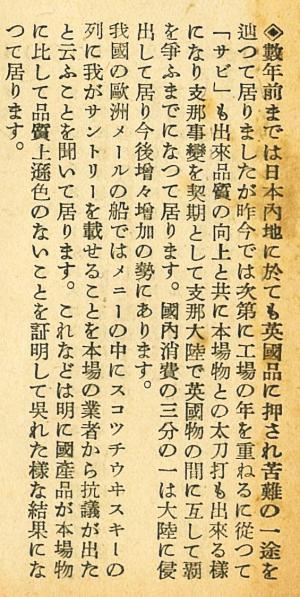 ◈數年前までは日本內地に於ても英國品に押され苦難の一途を
辿つて居りましたが昨今では次第に工場の年を重ねるに從つて
「サビ」も出來品質の向上と共に本場物との太刀打も出來る樣
になり支那事變を契期として支那大陸で英國物の間に互して覇
を爭ふまでになつて居ります。國內消費の三分の一は大陸に侵
出して居り今後增々增加の勢にあります。
我國の歐洲メールの船ではメニーの中にスコツチウヰスキーの
列に我がサントリーを載せることを本場の業者から抗議が出た
と云ふことを聞いて居ります。これなどは明に國產品が本場物
に比して品質上遜色のないことを証明して吳れた樣な結果にな
つて居ります。